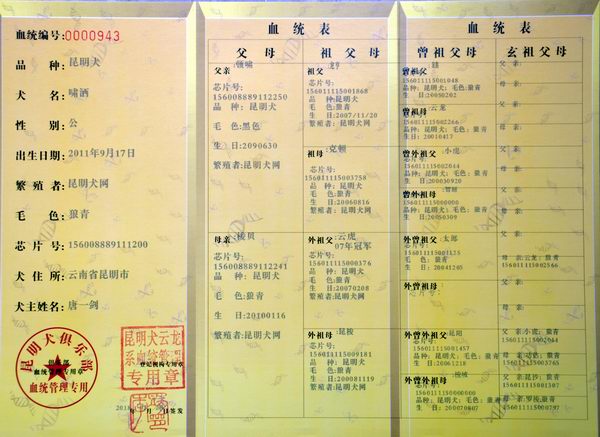 血统编号:0000943
品 种:昆明犬
犬 名:啸酒
性 别:公
出生日期:2011年9月17日
繁殖者:昆明犬网
毛 色:狼青
芯片号:156008889111200
犬住所:云南省昆明市
犬主姓名:唐一剑
昆明犬俱乐部
血统管理专用章
血统管理专用
昆明犬云龙
系血统管理
登记机构专用章
专用章
年 月 日签发
血 统 表
父 母
祖 父 母
父亲:
芯片号:
156008889112250
品 种:昆明犬
毛 色:黑色
生 日:2090630
繁殖者:昆明犬网
母亲:棱贝
芯片号:
156008889112241
品 种:昆明犬
毛 色:狼青
生 日:20100116
繁殖者:昆明犬网
祖父
芯片号:
156011115001868
品 种:昆明犬
毛 色:狼青
生 日:2007/11/20
繁殖者:昆明犬网
祖母:克顿
芯片号:
156011115003758
品 种:昆明犬
毛 色:狼青
生 日:20060816
繁殖者:昆明犬网
外祖父:云虎
07年冠军
芯片号:
156011115000376
品 种:昆明犬
毛 色:狼青
生 日:20070208
繁殖者:昆明犬网
外祖母:昆梭
芯片号:
156011115009181
品 种:昆明犬
毛 色:狼青
生 日:200811119
繁殖者:昆明犬网
血 统 表
曾祖父母
玄祖父母
曾祖父
156011115001048
品种:昆明犬;毛色:狼青
生 日:20050202
曾祖母:云龙
芯片号:
156011115002266
品种:昆明犬;毛色:狼青
生 日:20010417
曾外祖父:小虎
芯片号:
156011115002044
品种:昆明犬;毛色:狼青
生 日:200030920
曾外祖母
品种:昆明犬;毛色:狼青
外曾祖父:太郎
芯片号:
品种:昆明犬;毛色:狼青
生 日:20041205
外曾祖母
外曾外祖父:昆阳
芯片号:
156011115001457
品种:昆明犬;毛色:狼青
生 日:20061218
外曾外祖母
品种:昆明犬;毛色:狼青
父 亲:
母 亲:
父 亲:
母 亲:
父 亲:
母 亲:
父 亲:
母 亲:
父 亲:
母 亲:云龙:狼青
156011115002566
父 亲:
母 亲:
父 亲:小虎:狼青
156011115002044
母 亲:
156011115003765
父 亲:昆沙:狼青
156011115001307